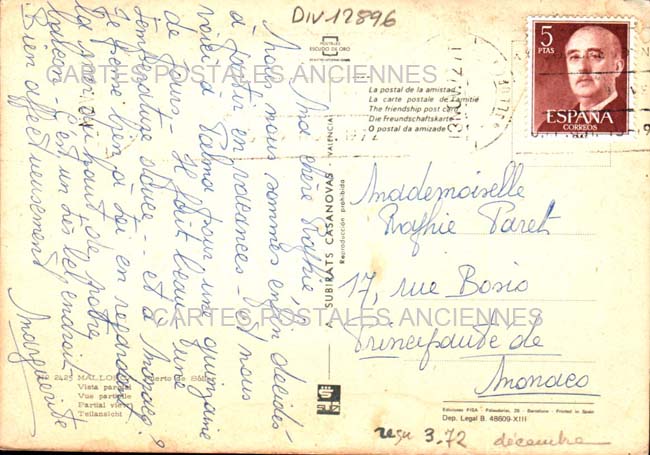 DIV-12896
POSTALES
ESCUDO DE ORO
CARTES POSTALES ANCIENNES
La postal de la amistad
La carte postale de l'amitié
The friendship post card
Die Freundschaftskarte
O postal da amizade
5
PTAS
ESPAÑA
CORREOS
Ma chère Raphie,
nous nous sommes enfin décidés
à partir en vacances - et nous
voici à Palma pour une quinzaine
de jours - il fait beau, une
température silencieuse
Je pense bien à toi en regardant
la mer du haut de notre
balcon - c'est un très bel endroit
Bien affectueusement
Marguerite
Mademoiselle
Raphie Paret
17, rue Bosio
Principauté de
Monaco
CARTES POSTALES ANCIENNES
A. SUBIRATS CASANOVAS VALENCIA
Reproducción prohibida
Nº 2425 MALLORCA Puerto de Sóller
Vista parcial
Vue partielle
Partial view
Teilansicht
Ediciones FISA - Palaudarias, 26 - Barcelona - Printed in Spain
Dep. Legal B. 48609-XIII
reçu 3.72 décembre